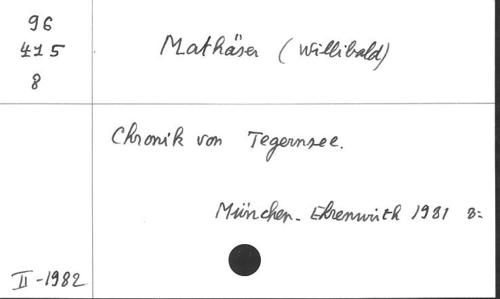 96
415
8
Mathäser (Willibald)
Chronik von Tegernsee.
München. Ehrenwirth 1981 8:
II-1982